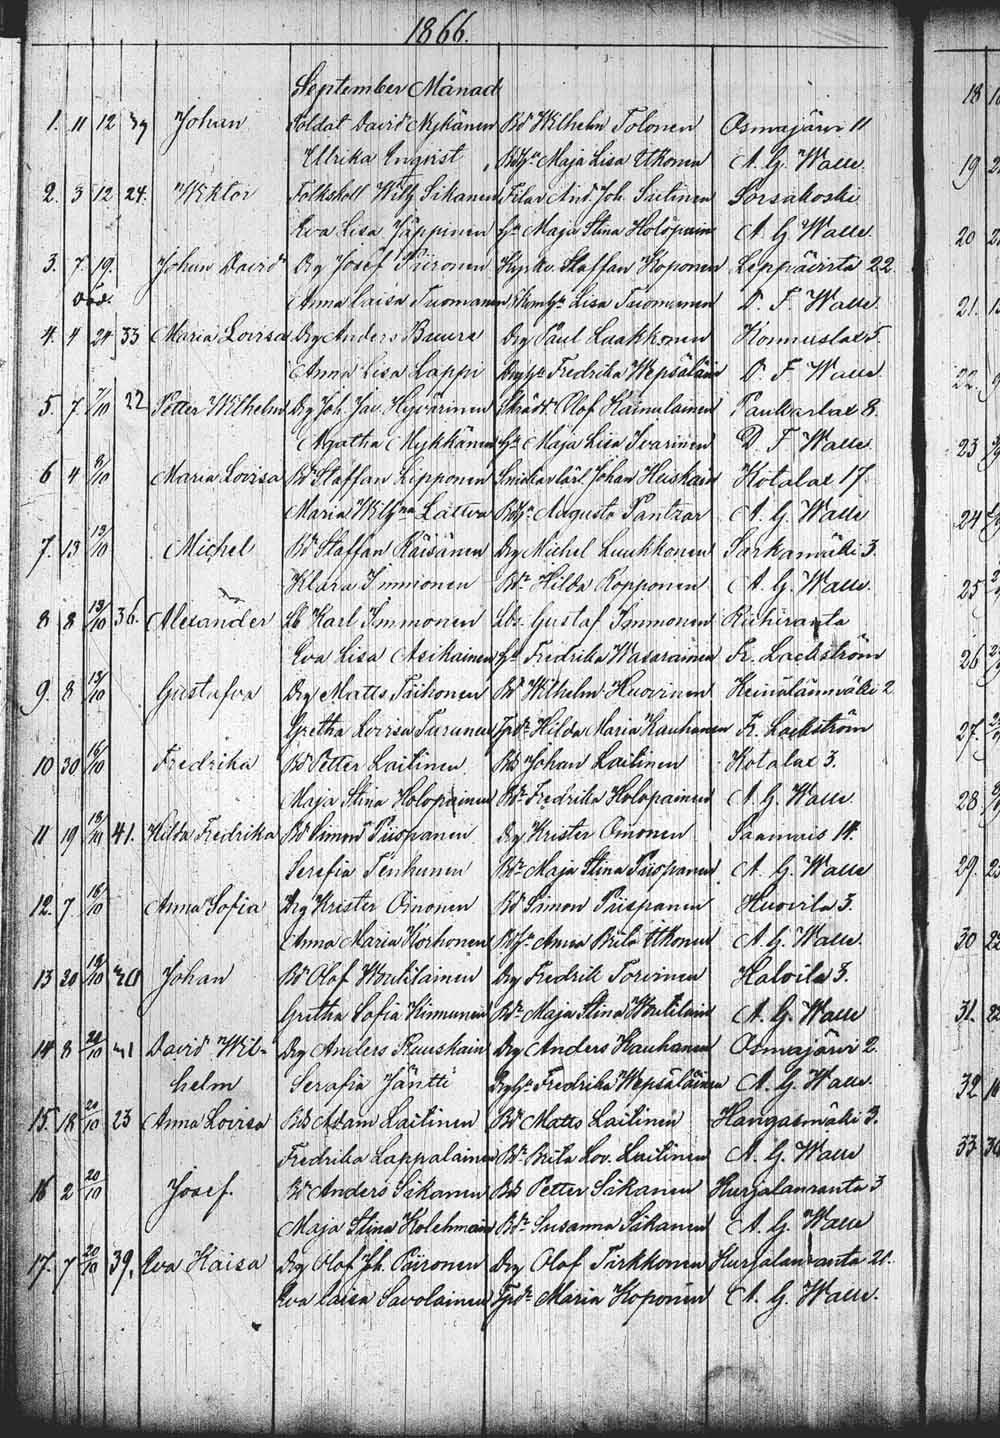 1866.
September Månad
1. 11 12 Johan Soldat David Nykänen Bd Wilhelm Tolonen Osmajärvi 11
Ulrika Enqvist Maja Lisa Utkonen A. G. Walle.
2. 3 12 24. Wiktor Sikanen And. Joh. Saitinen Sorsakoski
Eva Lisa Jäppinen Maja Stina Holopain A. G. Walle.
3. 7 19. Johan David Drg Josef Piironen Staffan Koponen Leppävirta 22
död. Anna Caisa Tuomanen Lisa Tuomanen D. F. Walle.
4. 4 24 33 Maria Lovisa Drg Anders Buure Drg Paul Laakkonen Konnuslax 5.
Anna Lisa Lappi Fredrika Wepsäläin D. F. Walle
5. 7 7/10 22 Petter Wilhelm Drg Joh. Hyvärinen Skrädd. Olof Kainulainen Paukarlax 8.
Agatha Mykkänen Maja Lisa Ivarinen D. F. Walle.
6 4 8/10 Maria Lovisa Bd Staffan Lipponen Johan Huskain Kotalax 17.
Maria Wilhna Lättva Augusta Pantzar A. G. Walle
7. 13 13/10 Michel Bd Staffan Räisänen Drg Michel Luukkonen Sarkamäki 3.
Klara Immonen Bdr Hilda Kopponen A. G. Walle.
8 8 13/10 36. Alexander Lb Karl Immonen Lbs. Gustaf Immonen Riihiranta
Eva Lisa Asikainen Fredrika Wasarainen Fr. Lackström
9. 8 13/10 Gustafva Drg Matts Taihonen Bd Wilhelm Kuovinen Heinälänmäki 2
Gretha Lovisa Turunen Hilda Maria Kauhanen Fr. Lackström
10 30 16/10 Fredrika Bd Petter Laitinen Bds Johan Laitinen Kotalax 3.
Maja Stina Holopainen Bdr Fredrika Holopainen A. G. Walle.
11 19 18/10 41. Hilda Fredrika Bd Simon Piispanen Drg Krister Oinonen Saamais 14.
Serafia Tenhunen Bdr Maja Stina Piispanen A. G. Walle
12. 7 18/10 Anna Sofia Drg Krister Oinonen Bd Simon Piispanen Kuovila 3.
Anna Maria Korhonen Anna Brita Utkonen A. G. Walle.
13 20 19/10 Johan Bd Olof Woutilainen Drg Fredrik Torvinen Kalvila 3.
Gretha Sofia Kinnunen Bdr Maja Stina Woutilain A. G. Walle
14 8 20/10 David Wil- Drg Anders Ruuskain Drg Anders Kauhanen Osmajärvi 2.
helm Serafia Jäntti Fredrika Wepsäläinen A. G. Walle.
15. 18 20/10 23 Anna Lovisa Bds Adam Laitinen Bd Matts Laitinen Kangasmäki 3.
Fredrika Lappalainen Bdr Brita Lov. Laitinen A. G. Walle
16 2 20/10 Josef. Bd Anders Sikanen Bds Petter Sikanen Kurjalanranta 3
Maja Stina Kolehmain Bdr Susanna Sikanen A. G. Walle
17. 7 20/10 39. Eva Kaisa Drg Olof Joh. Piironen Drg Olof Tirkkonen Kurjalanranta 20.
Eva Caisa Savolainen Maria Koponen A. G. Walle.
18
19
20
21.
22.
23
24
25
26
27.
28
29.
30
31.
32
33